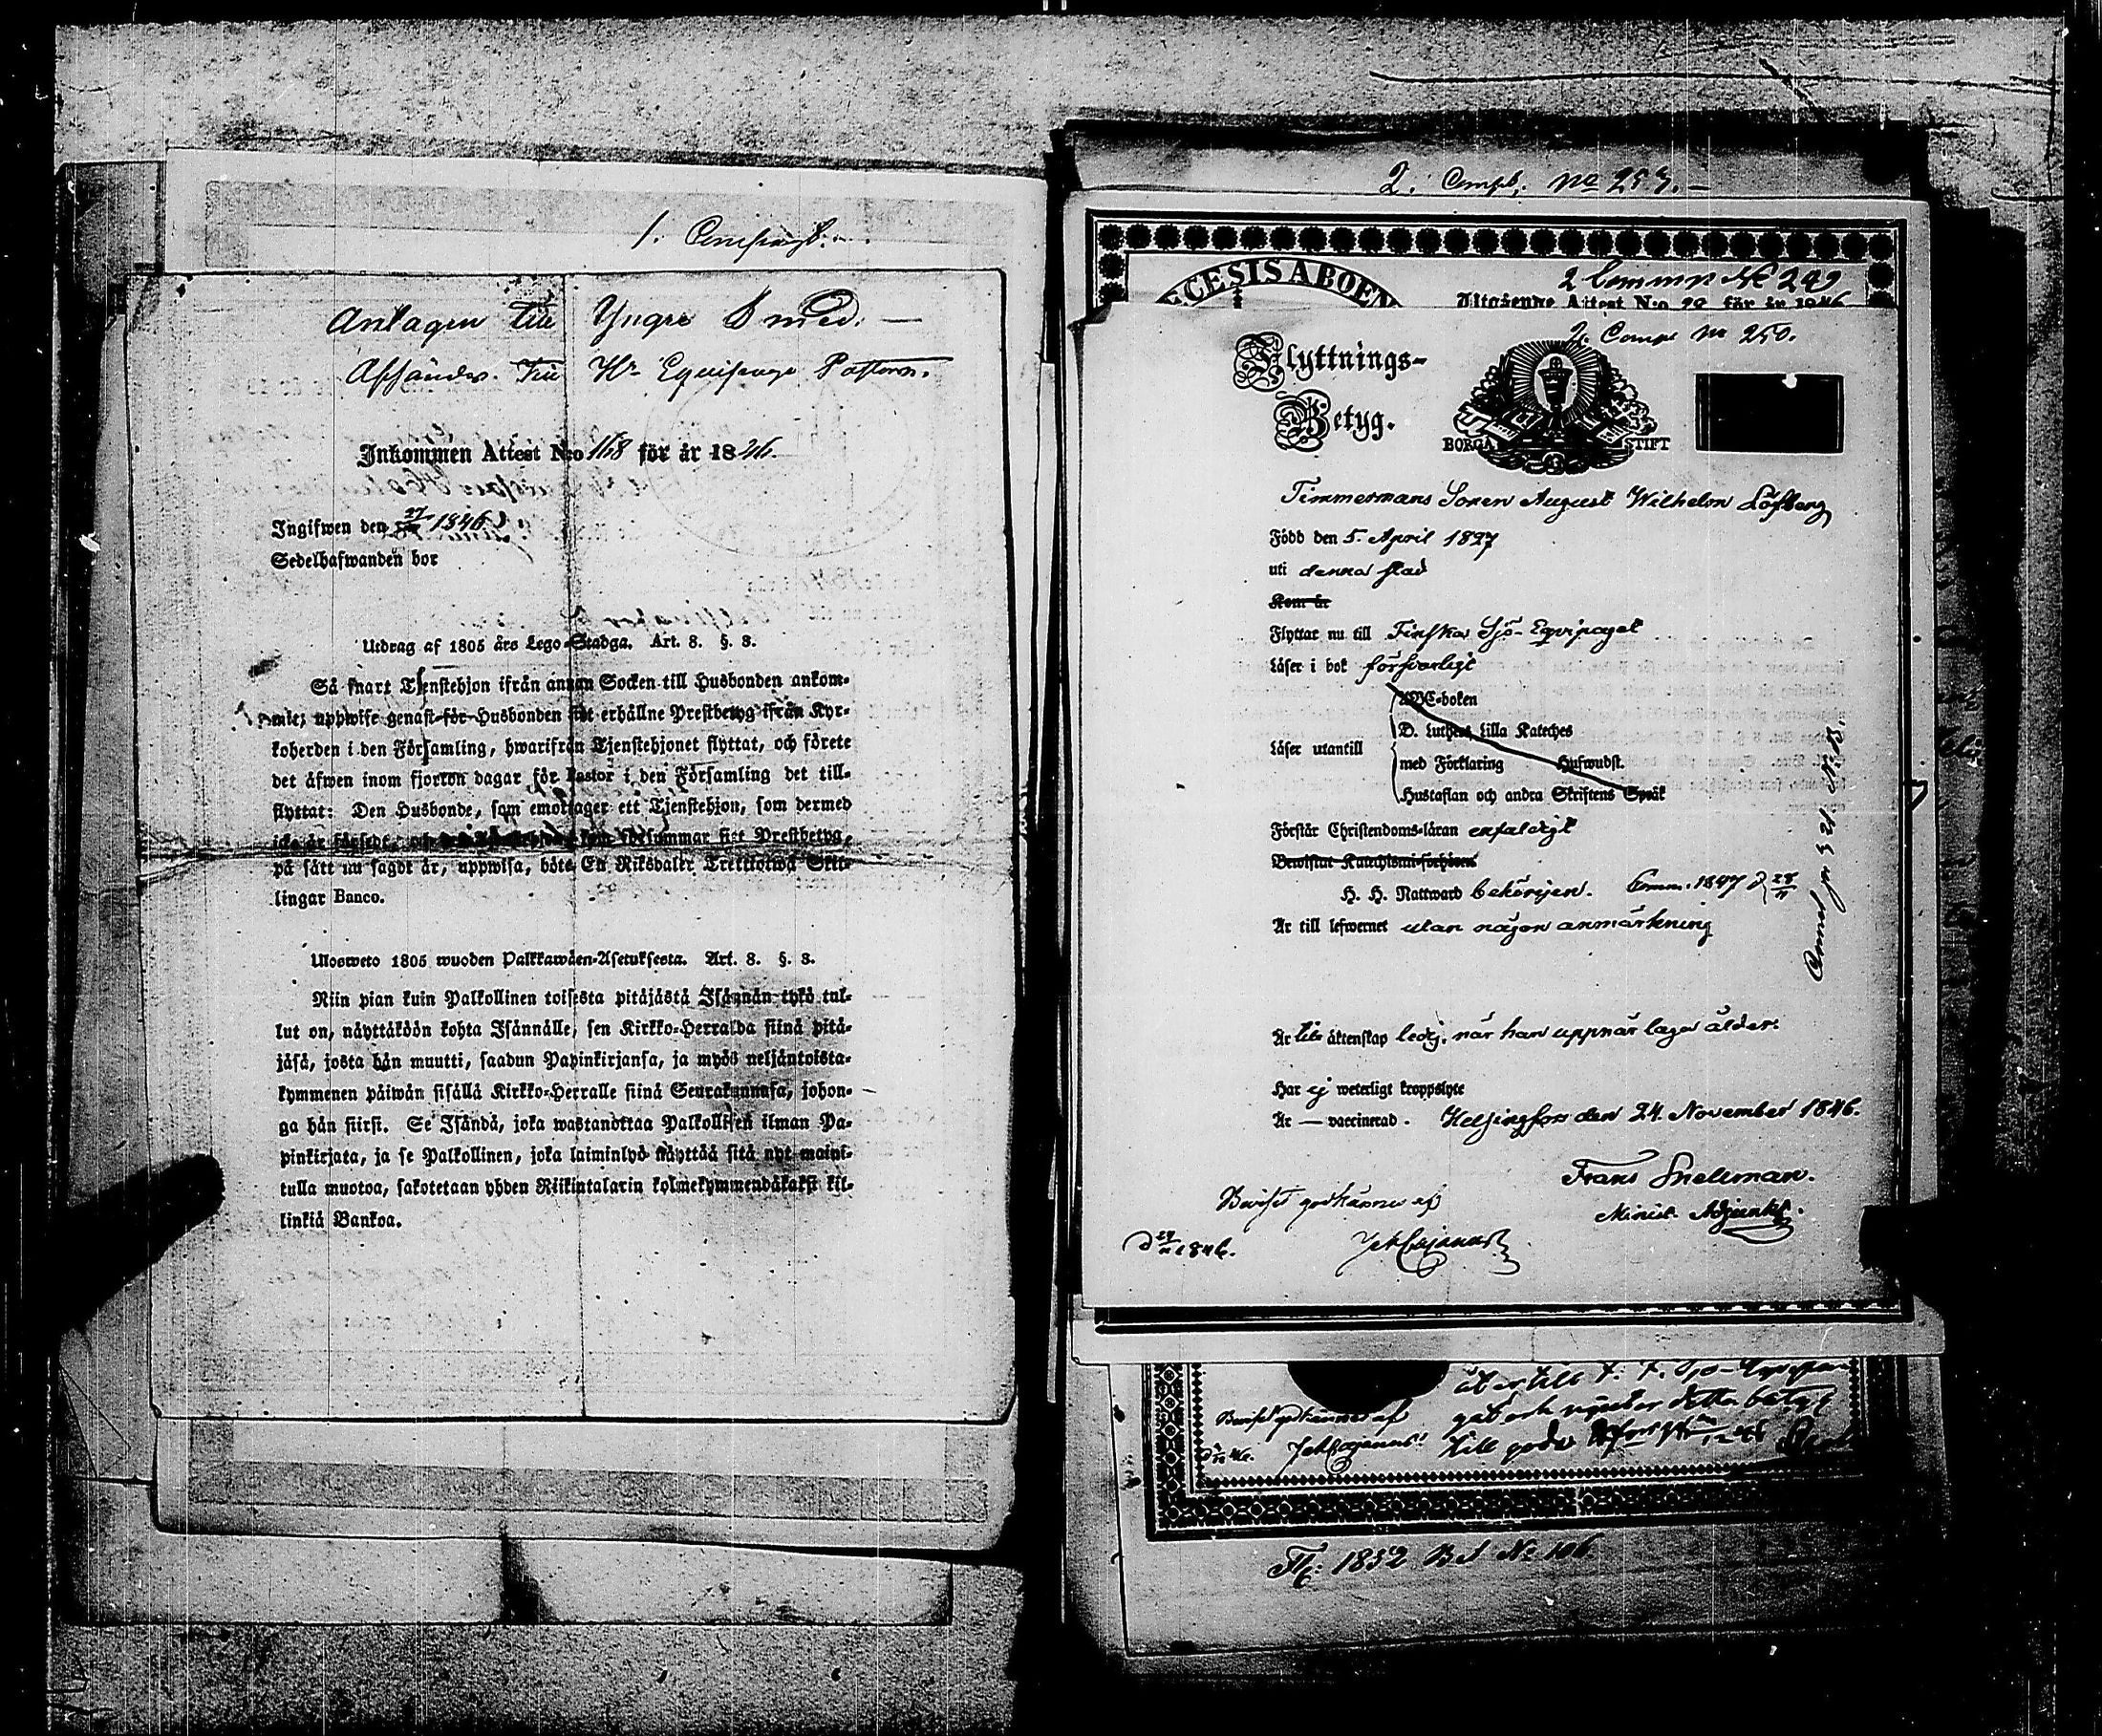 1. Compagt.
Antagen till Yngre Smed. —
Afsändes till Hr Equipage Pastorn.
Inkommen Attest N:o 168 för år 1846.
Ingifwen den 27/11 1846.
Sedelhafwanden bor
Utdrag af 1805 års Lego-Stadga. Art. 8. §. 8.
Så snart Tjenstehjon ifrån annan Socken till Husbonden ankom-
mit, uppwise genast för Husbonden sitt erhållne Prestbetyg ifrån Kyr-
koherden i den Församling, hwarifrån Tjenstehjonet flyttat, och förete
det äfwen inom fjorton dagar för Pastor i den Församling det till-
flyttat: Den Husbonde, som emottager ett Tjenstehjon, som dermed
icke är försedt, och som försummar sitt Prestbetyg,
på sätt nu sagdt är, uppwisa, böte En Riksdaler Trettiotwå Skil-
lingar Banco.
Ulosweto 1805 wuoden Palkkawäen-Asetuksesta. Art. 8. §. 8.
Niin pian kuin Palkollinen toisesta pitäjästä Isännän tykö tul-
lut on, näyttäköön kohta Isännälle, sen Kirkko-Herralda siinä pitä-
jäsä, josta hän muutti, saadun Papinkirjansa, ja myös neljäntoista-
kymmenen päiwän sisällä Kirkko-Herralle siinä Seurakunnasa, johon-
ga hän siirsi. Se Isändä, joka wastanottaa Palkollisen ilman Pa-
pinkirjata, ja se Palkollinen, joka laiminlyö näyttää sitä nyt mainit-
tulla muotoa, sakotetaan yhden Riikintalarin kolmekymmendäkaksi kil-
linkiä Bankoa.
2. Comp. No 257. —
2 Comp No 249
ECESIS ABOEN
Utgående Attest N:o 29 för år 1846
2. Comp No 250.
Flyttnings-
Betyg.
BORGÅ STIFT
Timmermans Sonen August Wilhelm Löfberg
Född den 5. April 1827
uti denna stad
Kom år
Flyttar nu till Finska Sjö-Equipaget
Läser i bok försvarligt
ABC-boken
D. Luthers Lilla Kateches
Läser utantill
med Förklaring Hufwudst.
Hustaflan och andra Skriftens Språk
Förstår Christendoms-läran enfaldigt
Bewistat Katechismi-förhören
H. H. Nattward behörigen. Comm. 1847 d 28/11
Är till lefwernet utan någon anmärkning
Är till äktenskap ledig, när han uppnår laga ålder.
Har ej weterligt kroppslyte
Är — vaccinerad. Helsingfors den 24. November 1846.
Frans Snellman.
Minist. Adjunkt.
Beviset godkännes af
d 24/11 1846.
Beviset godkännes af
till
detta betyg
Fl: 1852 Bet No 106.